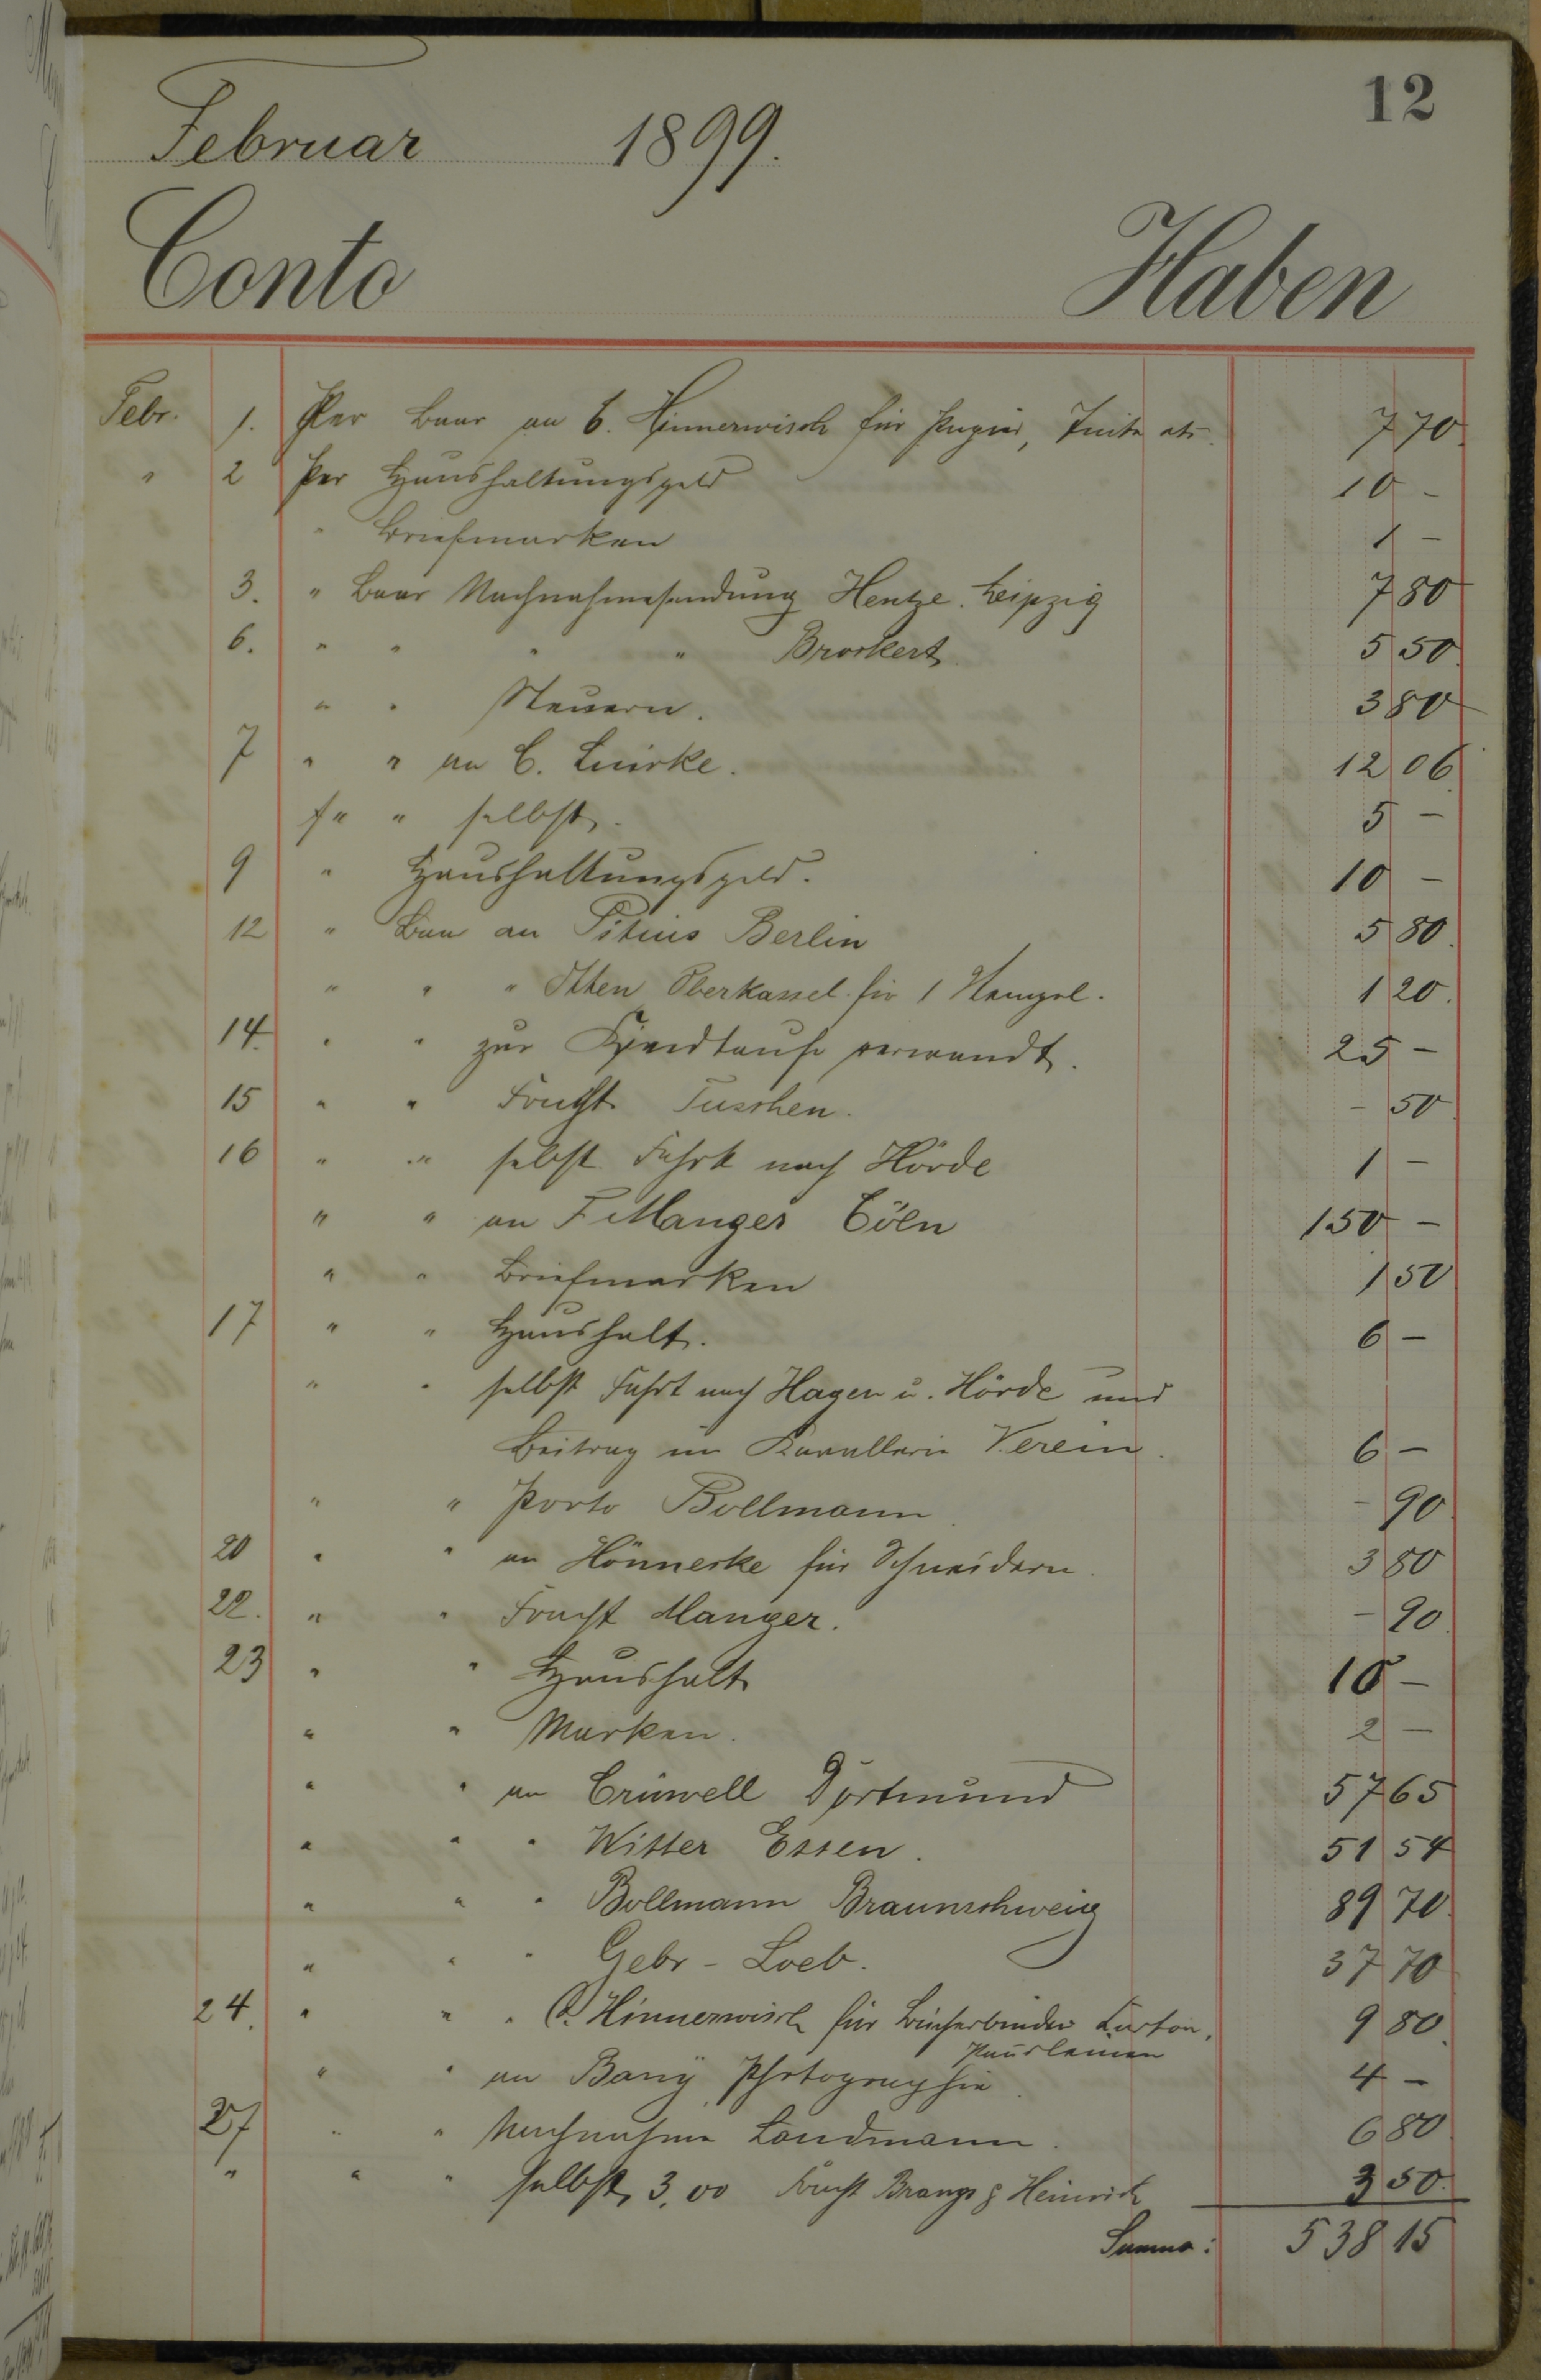 12
Februar 1899.
Conto Haben
Febr. 1. Per Baar an C. Hinnerwisch für Papier, Tinte etc. 7 70
" 2 Per Haushaltungsgeld 10 -
" Briefmarken 1 -
3. " Baar Nachnahmesendung Hentze. Leipzig 7 80
6. " " " " Brockert 5 50
" " Steuern. 3 80
7 " " an C. Luirke. 12 06
" " selbst. 5 -
9 " Haushaltungsgeld. 10 -
12 " Baar an Pitius Berlin 5 80
" " " Otten Oberkassel für 1 Stempel. 1 20
14. " " zur Kindtaufe verwandt. 25 -
15 " " Fracht Tusschen. - 50
16 " " selbst Fahrt nach Hörde 1 -
" " an F Manger Cöln 150 -
" " Briefmarken 1 50
17 " " Haushalt. 6 -
" " selbst Fahrt nach Hagen u. Hörde und
Beitrag im Kavallerie Verein. 6 -
" " Porto Bollmann - 90
20 " " an Hönneske für Schneidern. 3 80
22. " " Fracht Manger. - 90
23 " " Haushalt 10 -
" " Marken. 2 -
" " an Crüwell Dortmund 57 65
" " " Witter Essen. 51 54
" " " Bollmann Braunschweig 89 70
" " " Gebr - Loeb. 37 70
24. " " " C. Hinnerwisch für Bücherbinder Karton, 9 80
Pausleinen
" " an Photographie 4 -
27 " " Nachnahme Landmann. 6 80
" " " selbst 3,00 Fracht Brangs & Heinrich 3 50
Summa: 538 15